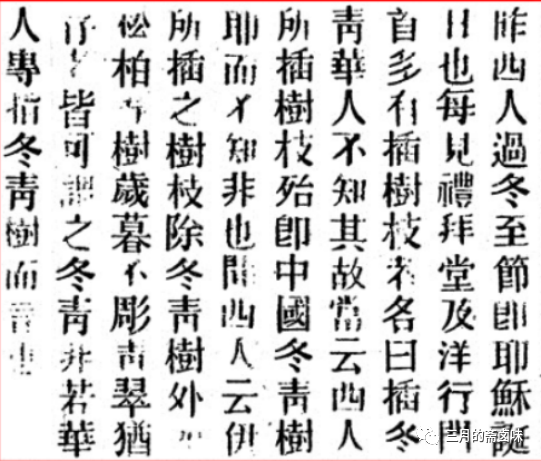 昨西人過冬至節即耶穌誕
日也每見禮拜堂及洋行門
首多有插樹枝者名曰插冬
青華人不知其故嘗云西人
所插樹枝殆即中國冬青樹
耶而不知非也聞西人云伊
所插之樹枝除冬青樹外
松柏等樹歲暮不彫青翠猶
存皆可謂之冬青非若華
人專指冬青樹而言也
三月的斋卤味